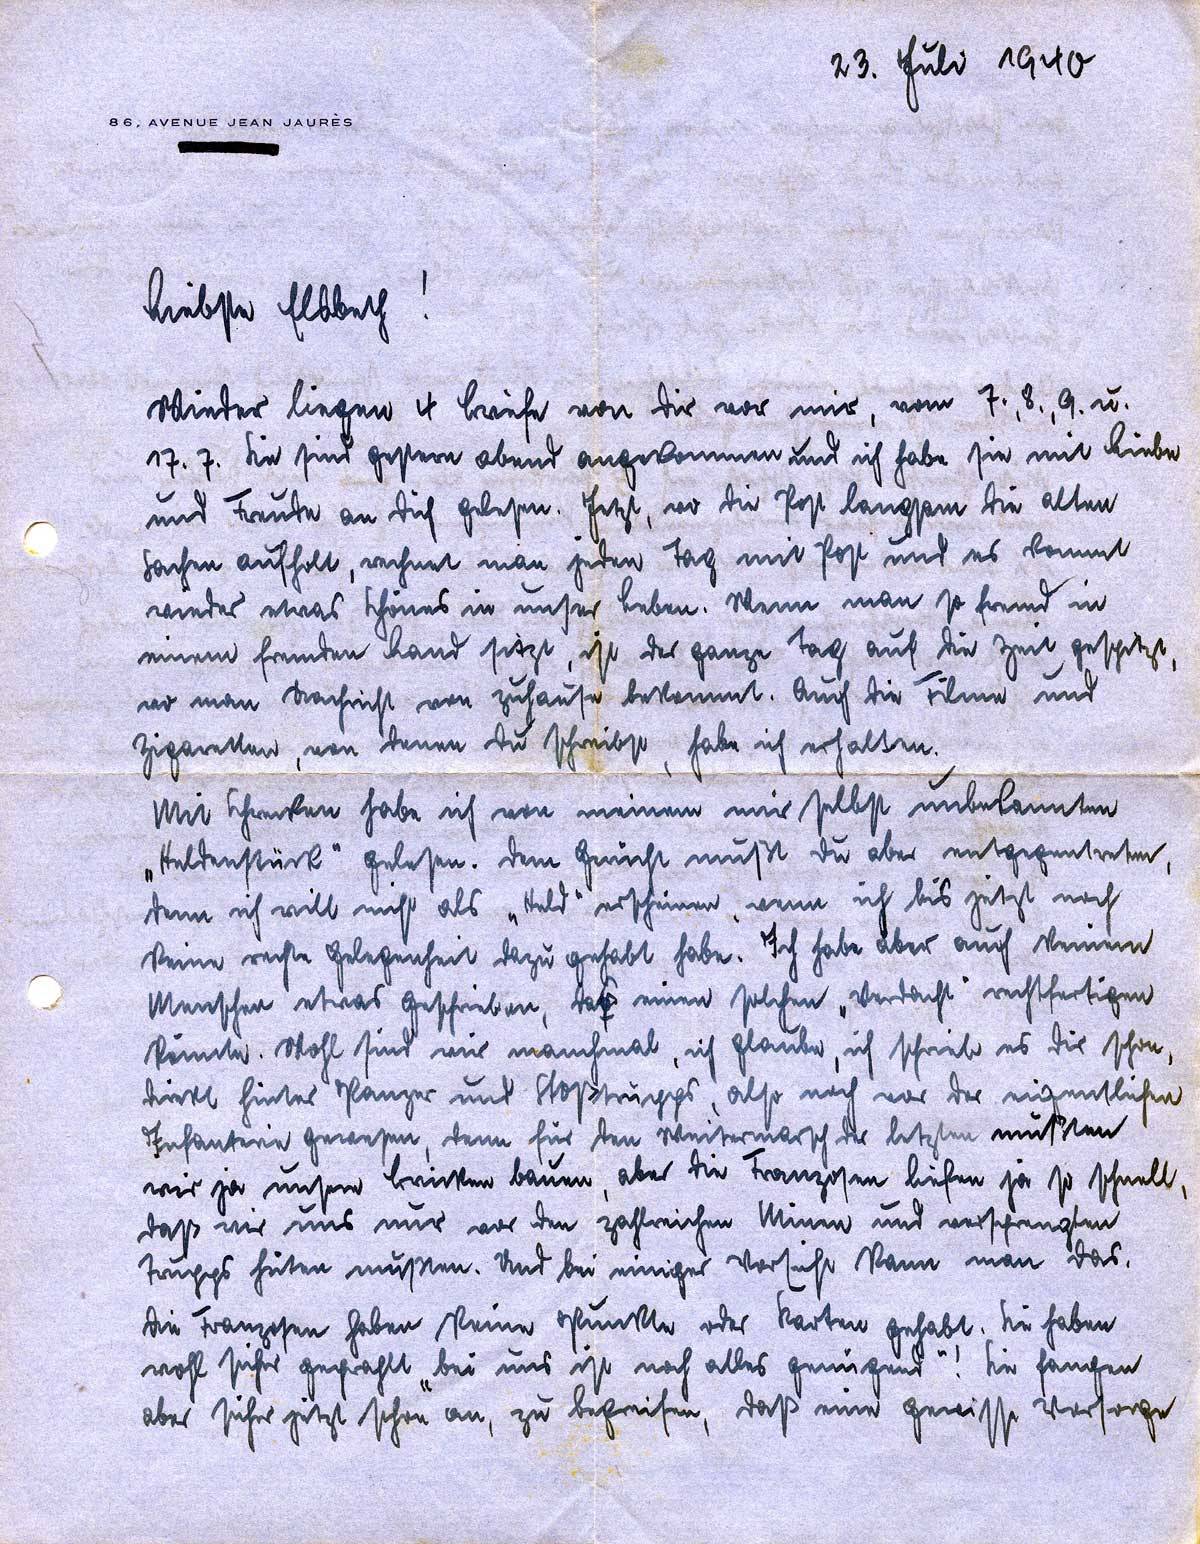 23. Juli 1940
86, AVENUE JEAN JAURÈS
Liebste Elsbeth!
Wieder liegen 4 Briefe von dir vor mir, vom 7., 8., 9. u.
17. 7. Sie sind gestern abend angekommen und ich habe sie mit Liebe
und Freude an dich gelesen. Jetzt, wo die Post langsam die alten
Sachen aufholt, rechnet man jeden Tag mit Post und es kommt
wieder etwas Schönes in unser Leben. Wenn man so fremd in
einem fremden Land sitzt, ist der ganze Tag auf die Zeit gespitzt,
wo man Nachricht von zuhause bekommt. Auch die Filme und
Zigaretten, von denen du schreibst, habe ich erhalten.
Mit Schrecken habe ich von meinem mir selbst unbekannten
„Heldenstück" gelesen. Dem Gerücht mußt du aber entgegentreten,
denn ich will nicht als „Held" erscheinen, wenn ich bis jetzt noch
keine rechte Gelegenheit dazu gehabt habe. Ich habe aber auch keinem
Menschen etwas geschrieben, das einen solchen „Verdacht" rechtfertigen
könnte. Wohl sind wir manchmal, ich glaube, ich schrieb es dir schon,
direkt hinter Panzer und Stoßtrupps, also noch vor der eigentlichen
Infanterie gewesen, denn für den Weitermarsch der letzten mußten
wir ja unsere Brücken bauen, aber die Franzosen liefen ja so schnell,
daß wir uns nur vor den zahlreichen Minen und versprengten
Trupps hüten mußten. Und bei einiger Vorsicht kann man das.
Die Franzosen haben keine Punkte oder Karten gehabt. Sie haben
wohl sicher geprahlt „bei uns ist noch alles genügend"! Sie fangen
aber sicher jetzt schon an, zu begreifen, daß eine gewisse Vorsorge